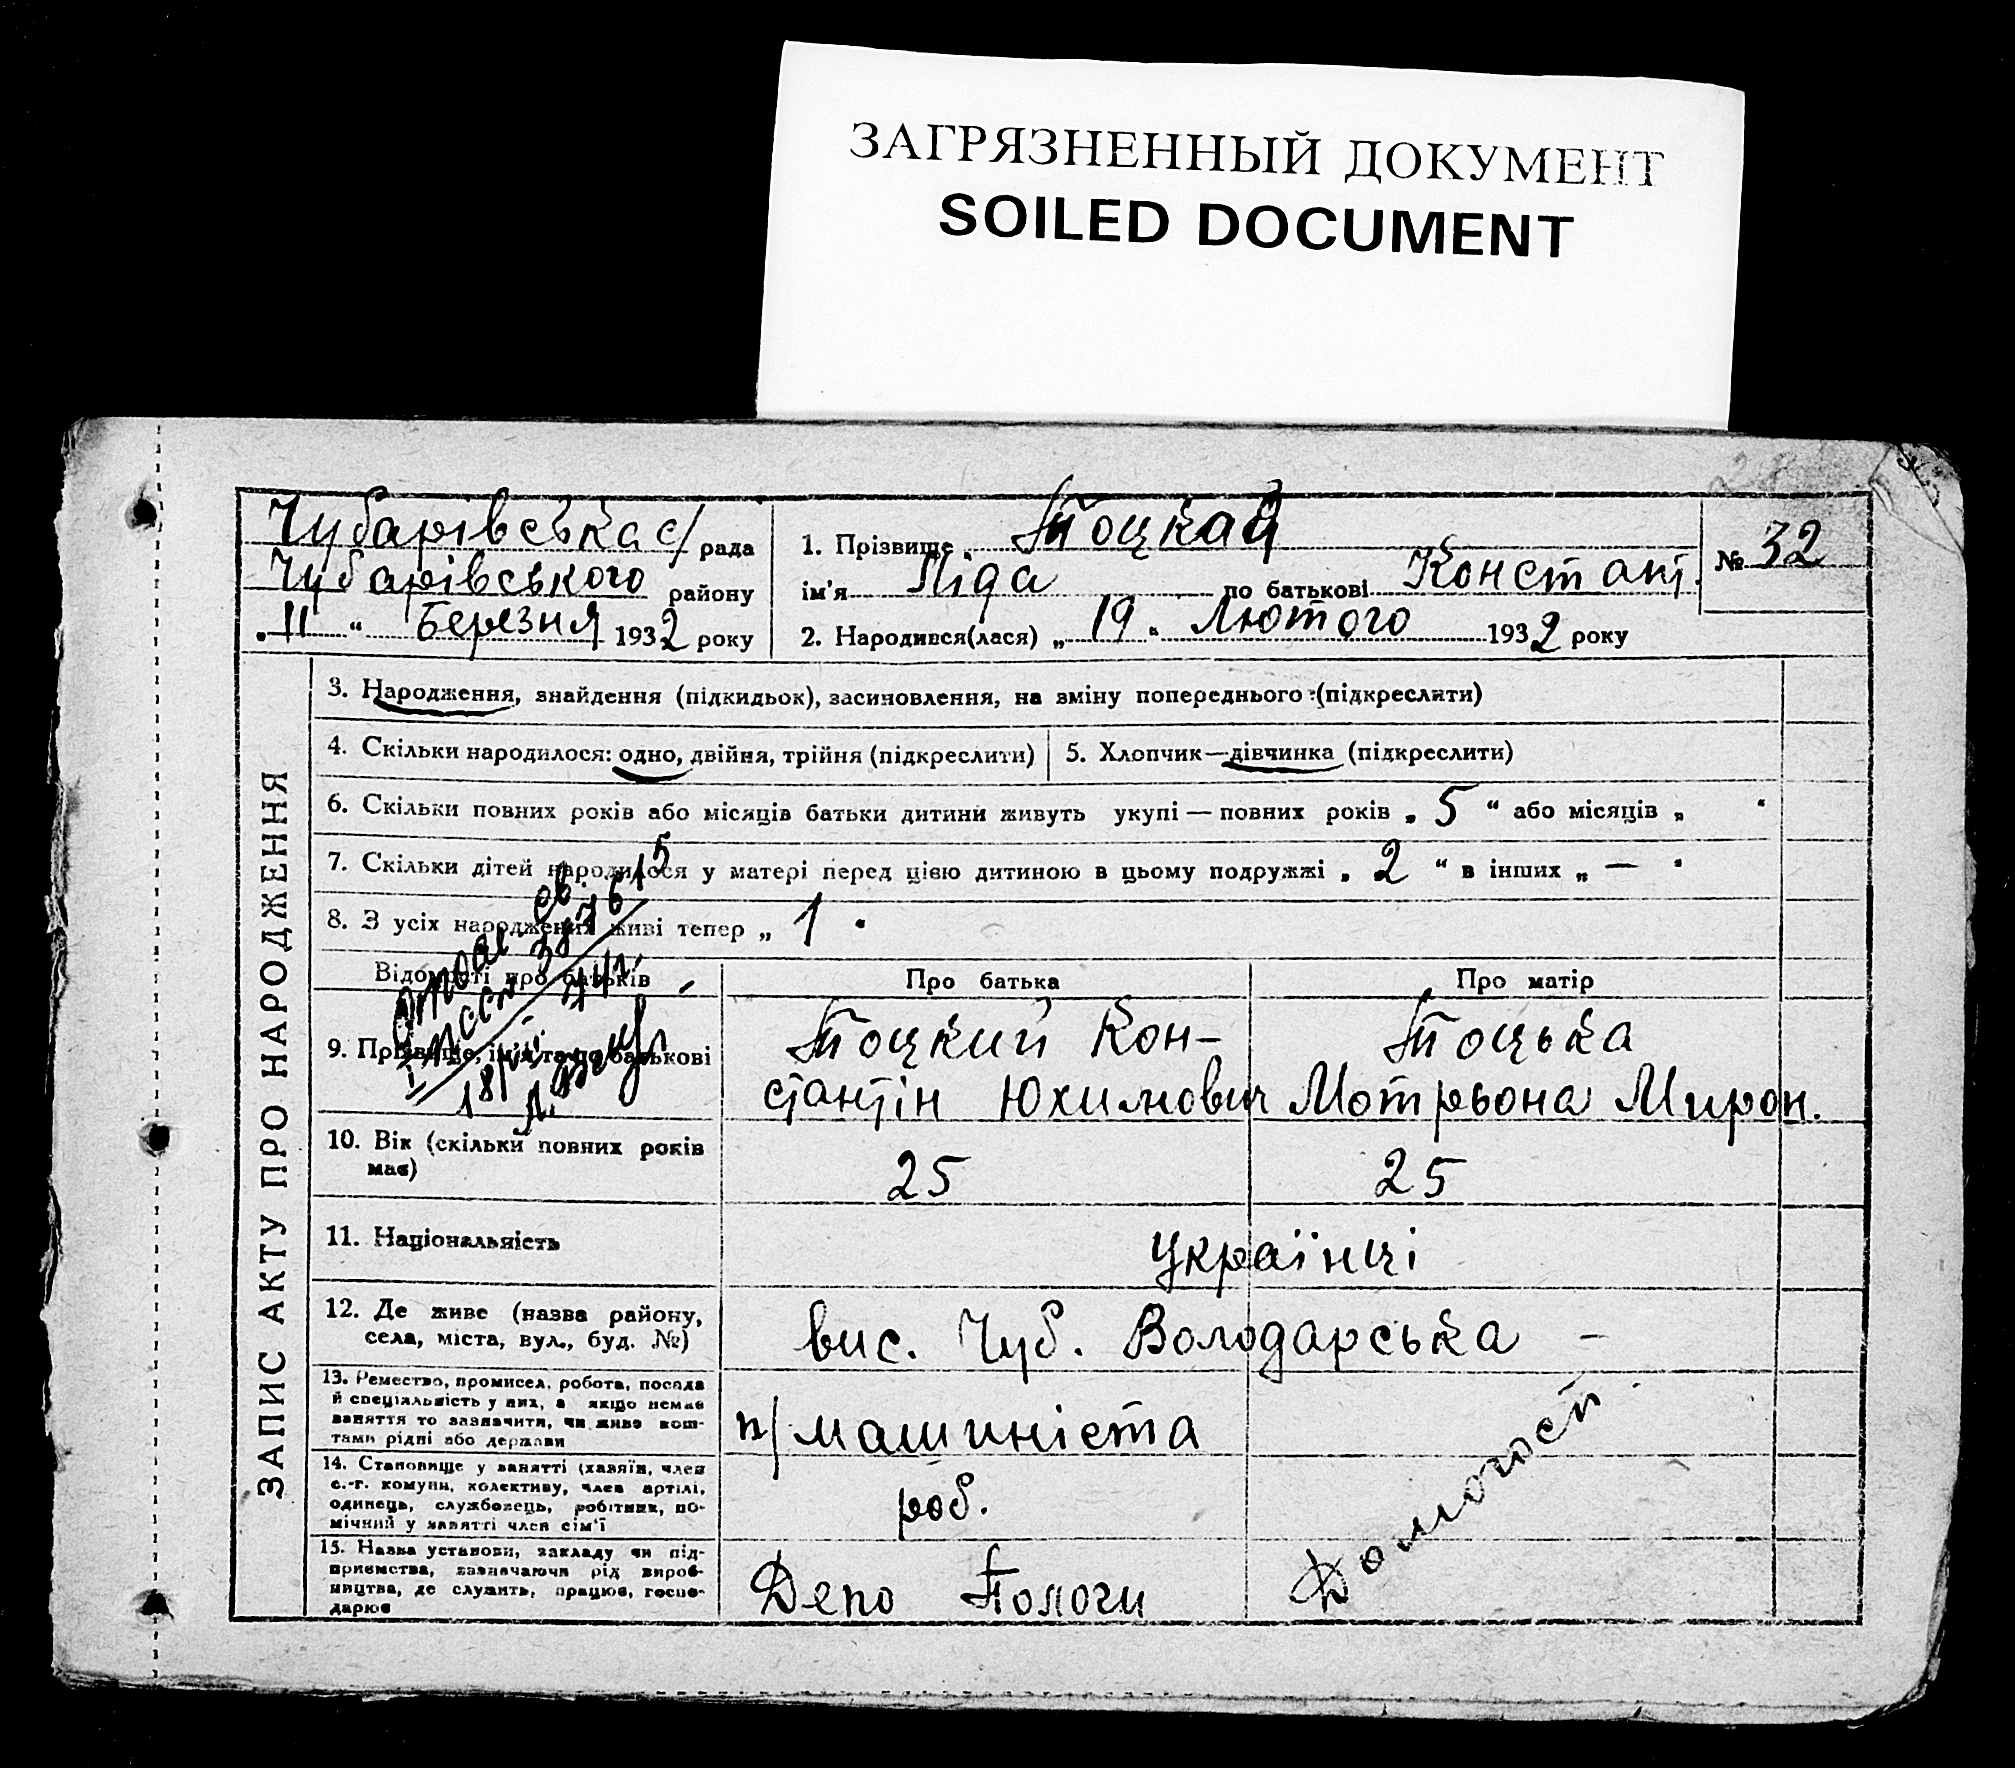 ЗАГРЯЗНЕННЫЙ ДОКУМЕНТ
SOILED DOCUMENT
Чубарівська с/ рада
Чубарівського району
„ 11 “ Березня 1932 року
1. Прізвище Тоцкая
ім'я Ліда по батькові Констант.
2. Народився(лася) „ 19 “ Лютого 1932 року
№ 32
ЗАПИС АКТУ ПРО НАРОДЖЕННЯ
3. Народження, знайдення (підкидьок), засиновлення, на зміну попереднього (підкреслити)
4. Скільки народилося: одно, двійня, трійня (підкреслити)
5. Хлопчик—дівчинка (підкреслити)
6. Скільки повних років або місяців батьки дитини живуть укупі — повних років „ 5 “ або місяців „ “
7. Скільки дітей народилося у матері перед цією дитиною в цьому подружжі „ 2 “ в інших „ — “
8. З усіх народжених живі тепер „ 1 “
Відомості про батьків
Про батька
Про матір
9. Прізвище, ім'я та по батькові
Тоцкий Кон-
стантін Юхимович
Тоцька
Мотрьона Мирон.
10. Вік (скільки повних років
має)
25
25
11. Національність
Українці
12. Де живе (назва району,
села, міста, вул., буд. №)
вис. Чуб. Володарська –
13. Ремество, промисел, робота, посада
й спеціяльність у них, а якщо немає
заняття то зазначити, чи живе кош-
тами рідні або держави
п/машиніста
14. Становище у занятті (хазяїн, член
с.-г. комуни, колективу, член артілі,
одинець, службовець, робітник, по-
мічний у занятті член сім'ї
роб.
15. Назва установи, закладу чи під-
приємства, зазначаючи рід вироб-
ництва, де служить, працює, госпо-
дарює
Депо Пологи
Домогосп